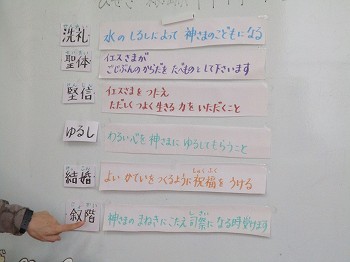 洗礼 水のしるしによって 神さまのこどもになる
聖体 イエスさまが
ごじぶんのからだを たべものとして下さいます
堅信 イエスさまをつたえ
ただしくつよく生きる力をいただくこと
ゆるし わるい心を神さまに ゆるしてもらうこと
結婚 よい かていをつくるように祝福をうける
叙階 神さまの まねきにこたえ 司祭になる